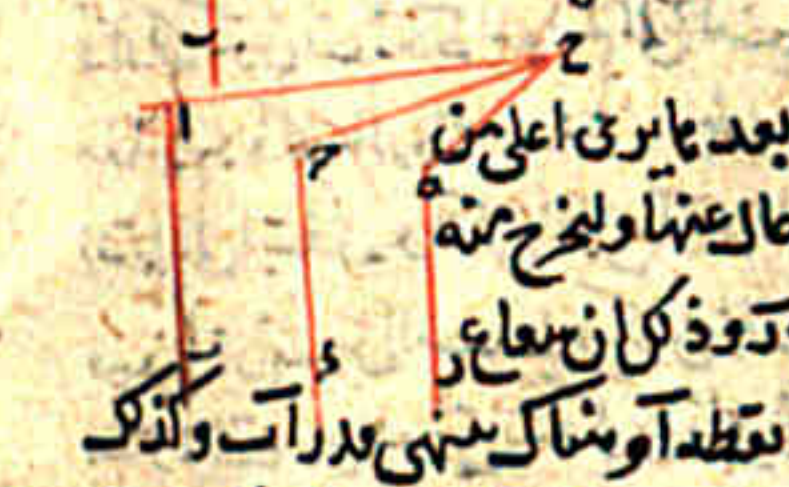 ب
ح
ا
بعد ما يرى اعلى من
ح
ه
حال عنها وليخرج منه
وذلك ان شعاع
ء
ر
ب
نقطه آ وهناك ينتهى قدر آب وكذلك